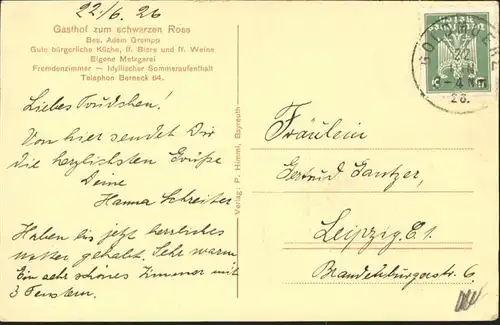 22./6. 26
Gasthof zum schwarzen Ross
Bes. Adam Grampp
Gute bürgerliche Küche, ff. Biere und ff. Weine
Eigene Metzgerei
Fremdenzimmer — Idyllischer Sommeraufenthalt
Telephon Berneck 64.
Liebes Trudchen!
Von hier sendet Dir
die herzlichsten Grüße
Deine
Hanna Schreiter
Haben bis jetzt herrliches
wetter gehabt. Sehr warm
Ein sehr schönes Zimmer mit
3 Fenstern.
Verlag: P. Himml, Bayreuth
3-4 Nm
26.
Fräulein
Gertrud Gantzer,
Leipzig. E. 1.
Brandenburgerstr. 6.